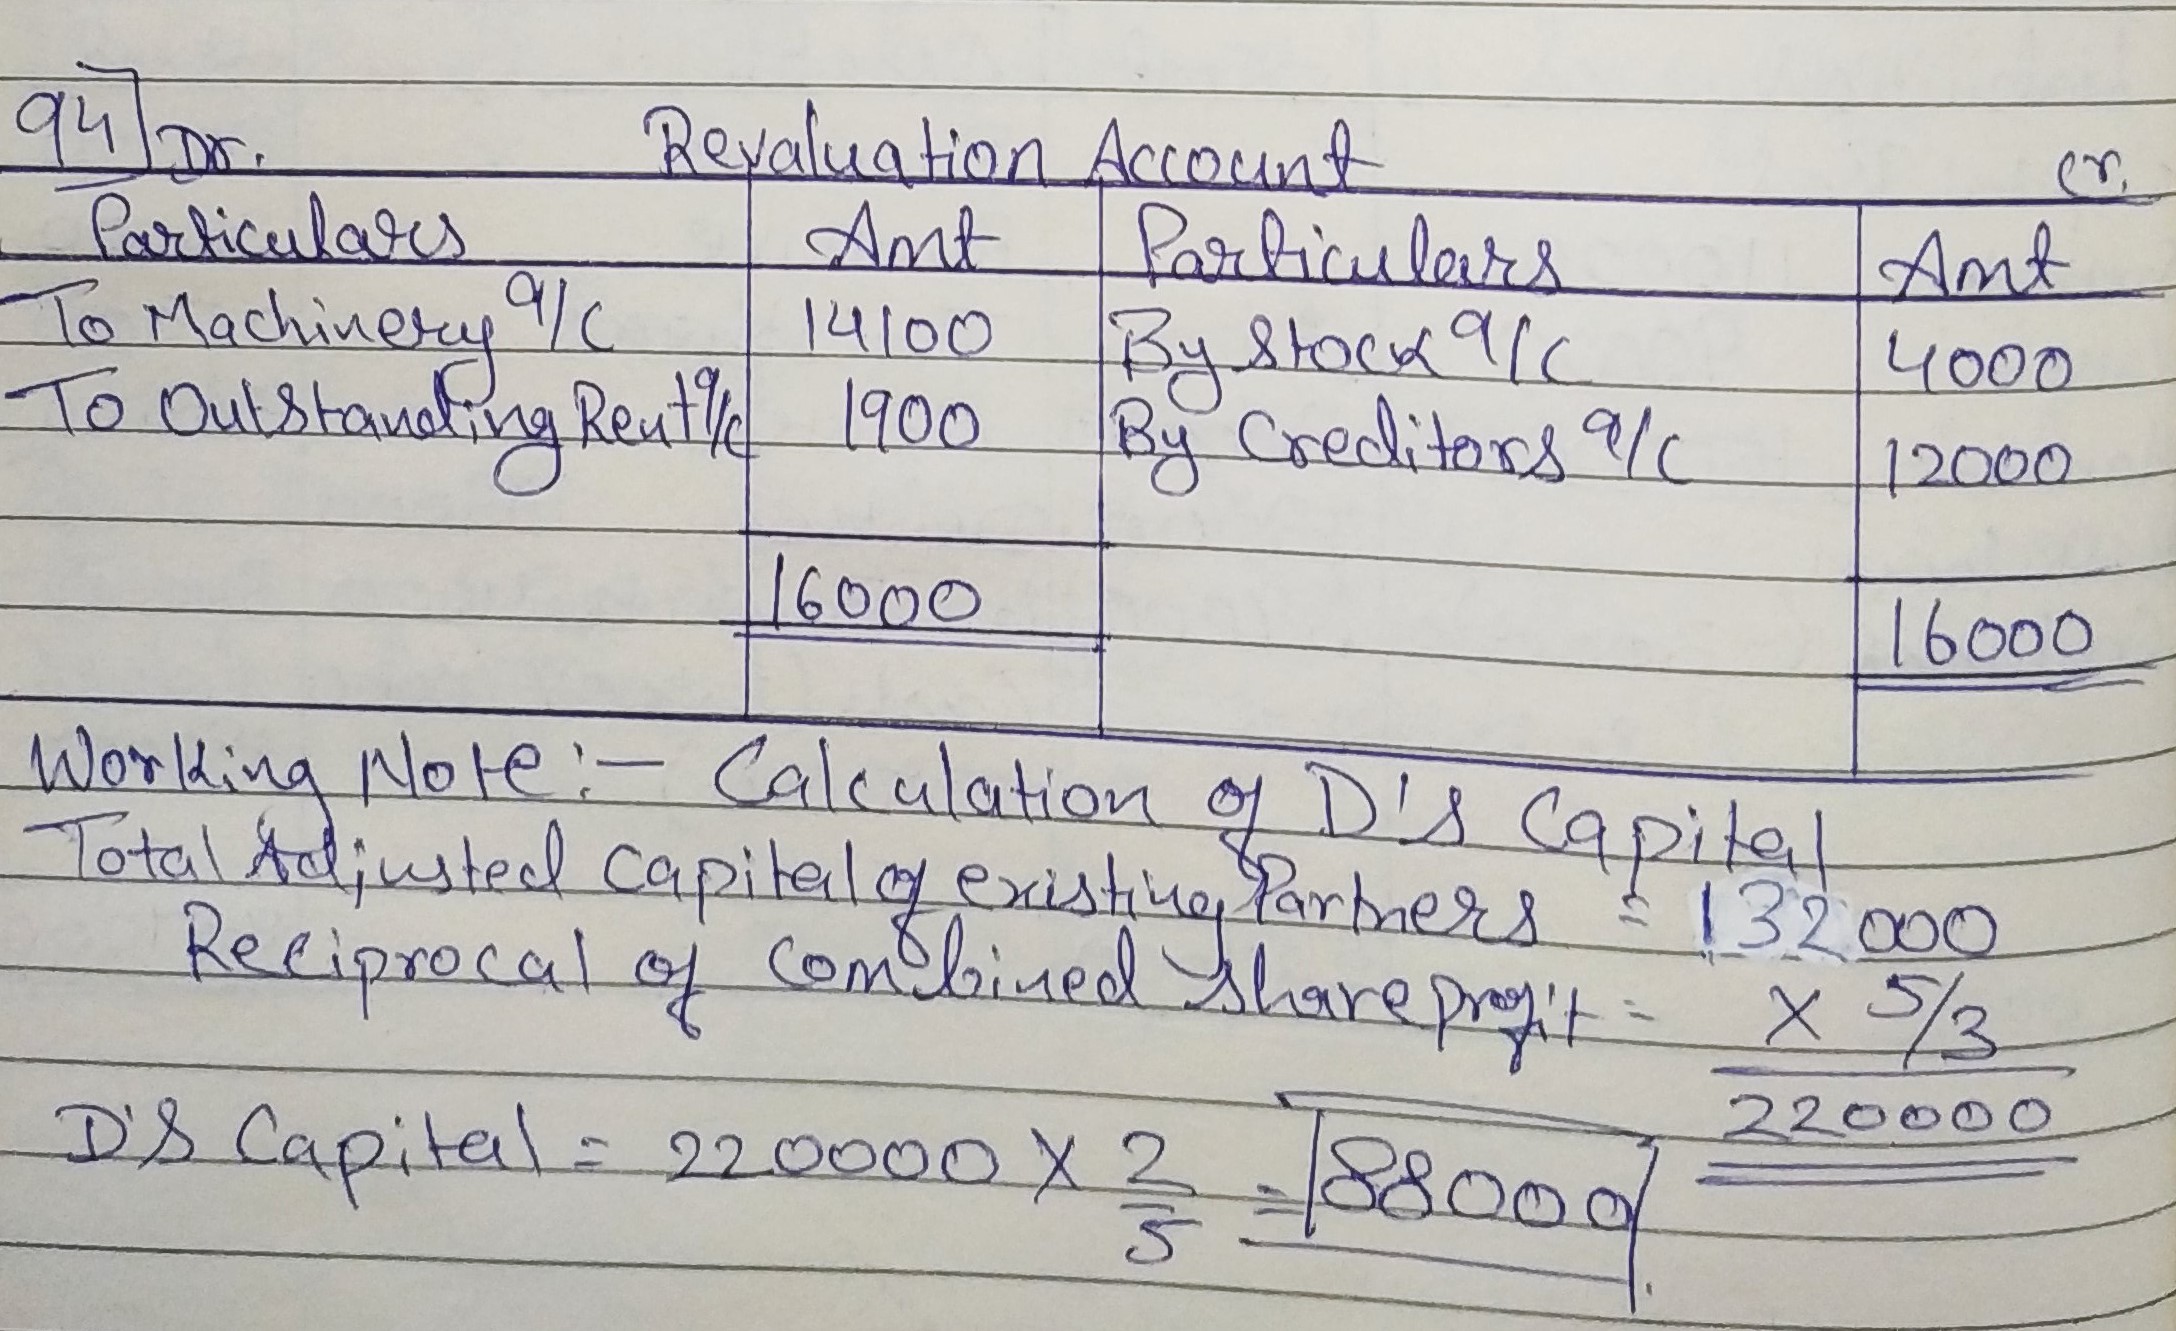 94] Dr. Revaluation Account Cr.
Particulars Amt Particulars Amt
To Machinery a/c 14100 By Stock a/c 4000
To Outstanding Rent a/c 1900 By Creditors a/c 12000
16000 16000
Working Note:- Calculation of D's Capital
Total Adjusted Capital of existing Partners = 132000
Reciprocal of Combined Share profit = X 5/3
220000
D's Capital = 220000 X 2/5 = 88000